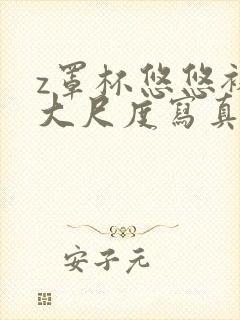 z罩杯悠悠裸
大尺度寫真
安子元